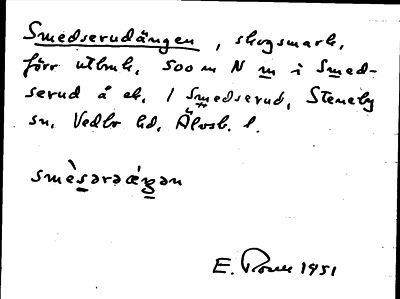 Smedserudängen, skogsmark,
förr utbruk, 500 m N m i Smed-
serud å ek. 1 Smedserud, Steneby
sn, Vedbo hd, Älvsb. l.
smè̀sərəǽŋən
E. 1951